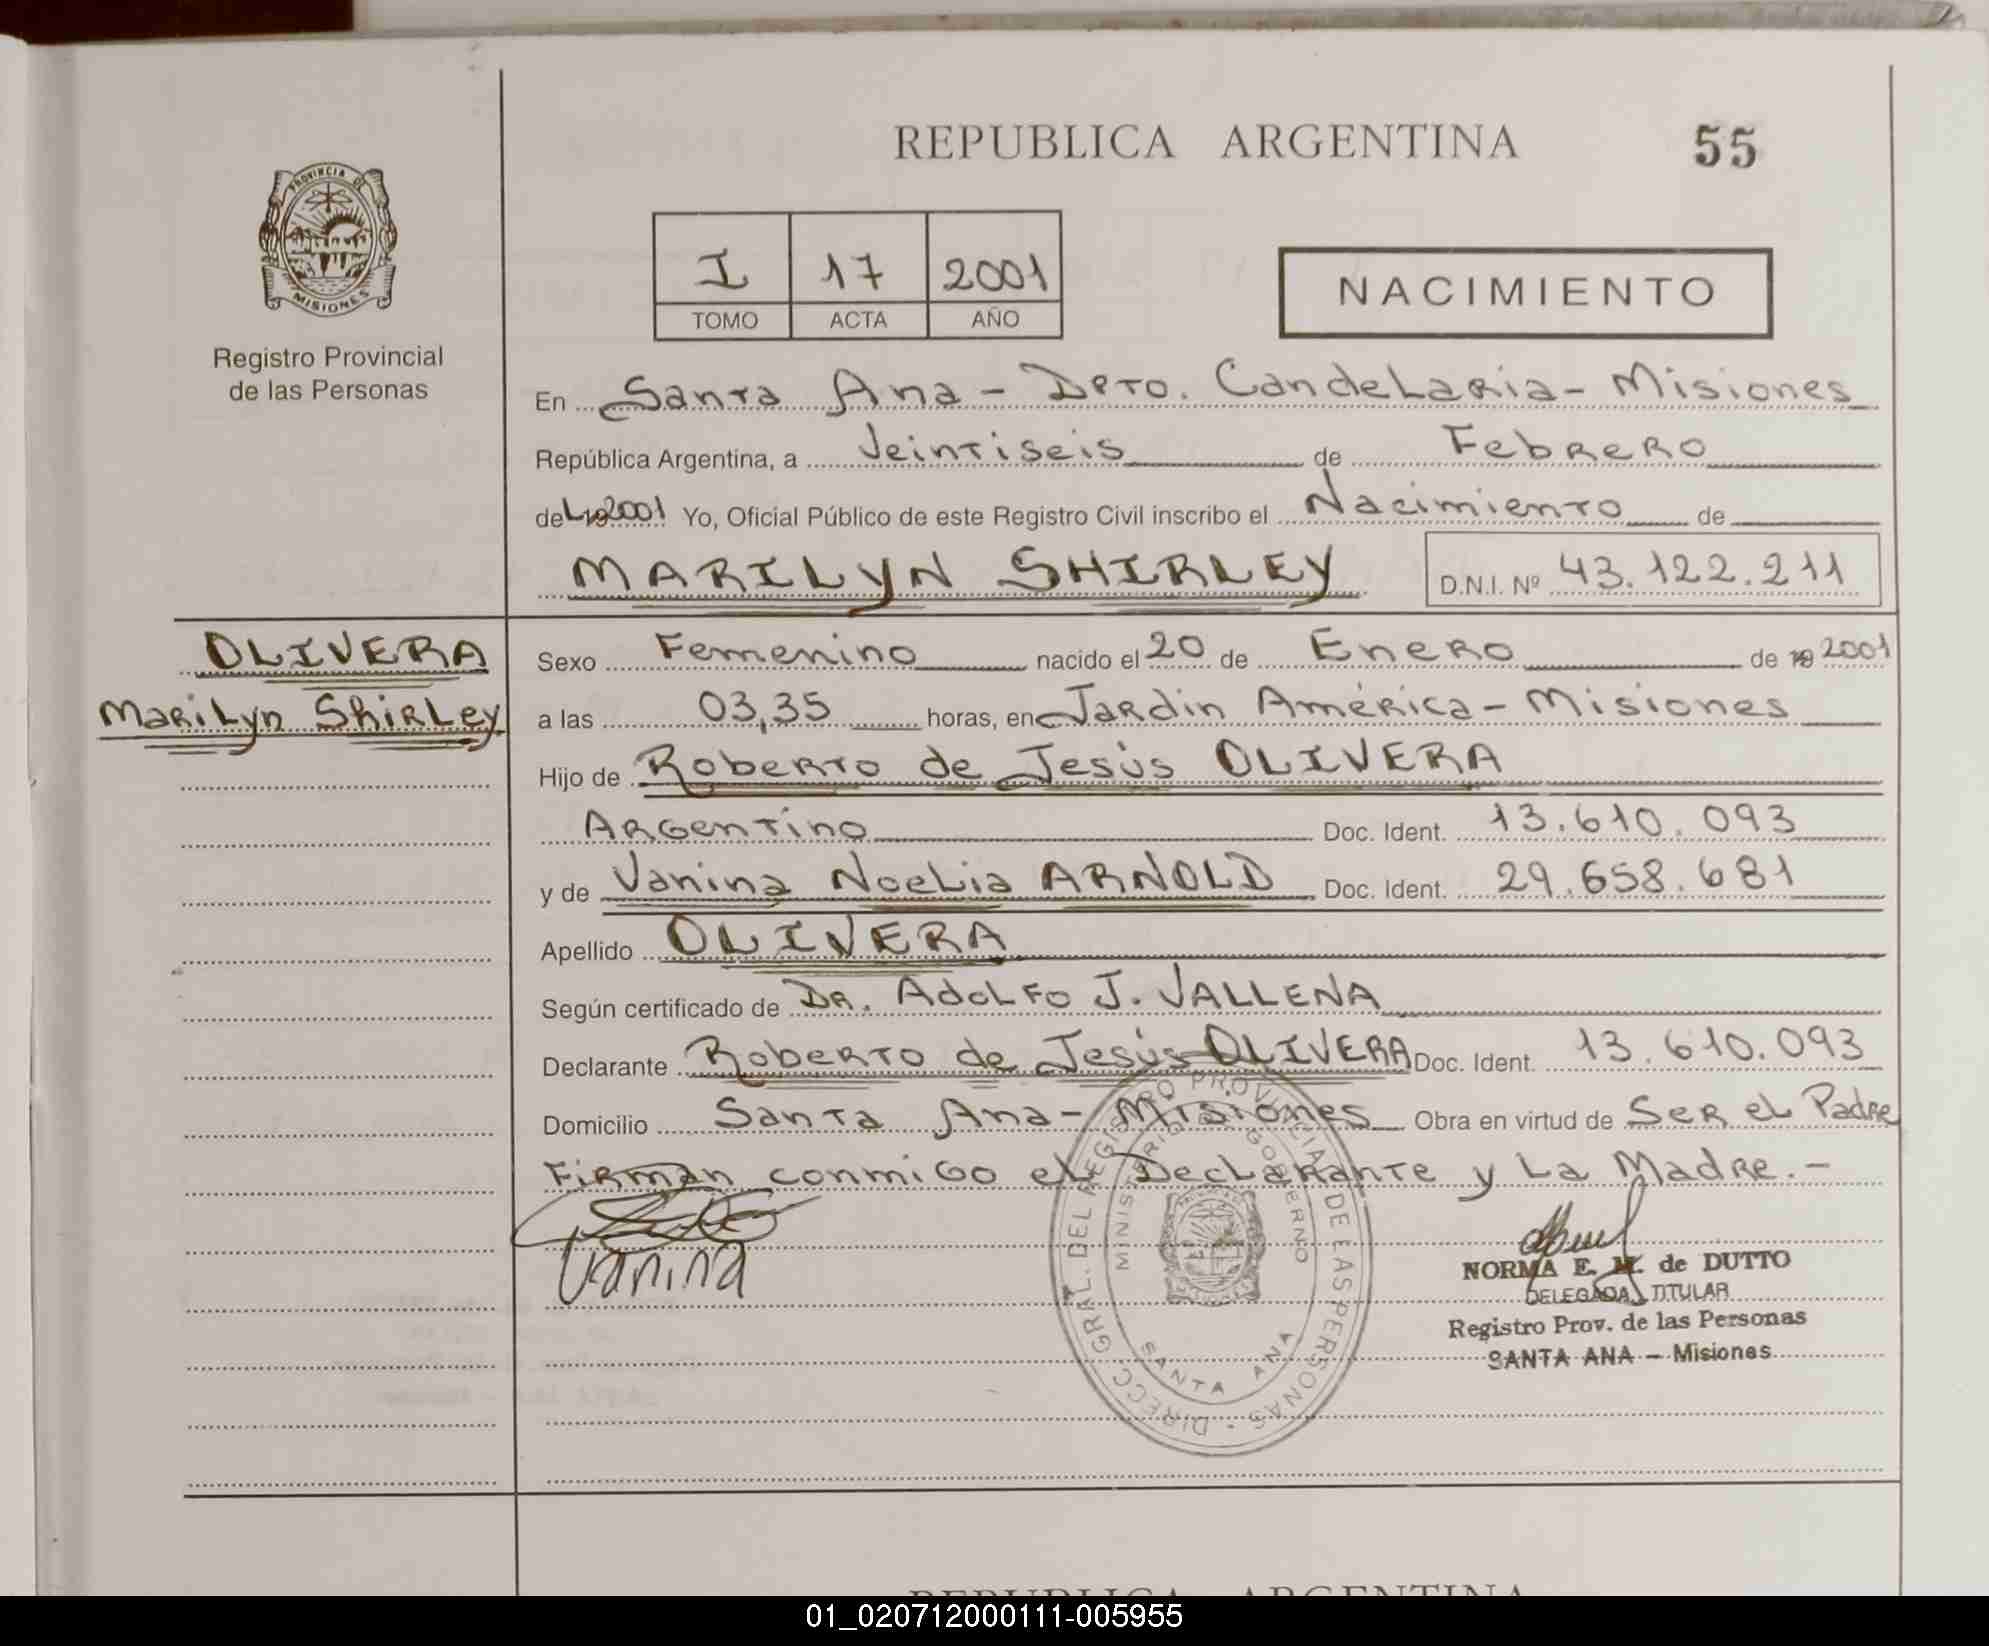 REPUBLICA ARGENTINA 55
PROVINCIA DE
MISIONES
Registro Provincial
de las Personas
I 17 2001
TOMO ACTA AÑO
NACIMIENTO
En Santa Ana - Dpto. Candelaria - Misiones
República Argentina, a Veintiseis de Febrero
del 19 2001 Yo, Oficial Público de este Registro Civil inscribo el Nacimiento de
MARILYN SHIRLEY D.N.I. Nº 43.122.211
OLIVERA
Marilyn Shirley
Sexo Femenino nacido el 20 de Enero de 19 2001
a las 03,35 horas, en Jardin América - Misiones
Hijo de Roberto de Jesús OLIVERA
Argentino Doc. Ident. 13.610.093
y de Vanina Noelia ARNOLD Doc. Ident. 29.658.681
Apellido OLIVERA
Según certificado de Dr. Adolfo J. VALLENA
Declarante Roberto de Jesús OLIVERA Doc. Ident. 13.610.093
Domicilio Santa Ana - Misiones Obra en virtud de Ser el Padre
Firman conmigo el Declarante y La Madre.-
Vanina
DIRECC. GRAL. DEL REGISTRO PROVINCIAL DE LAS PERSONAS
MINISTERIO DE GOBERNO
SANTA ANA
NORMA E. M. de DUTTO
DELEGADA TITULAR
Registro Prov. de las Personas
SANTA ANA - Misiones
REPUBLICA ARGENTINA
01_020712000111-005955